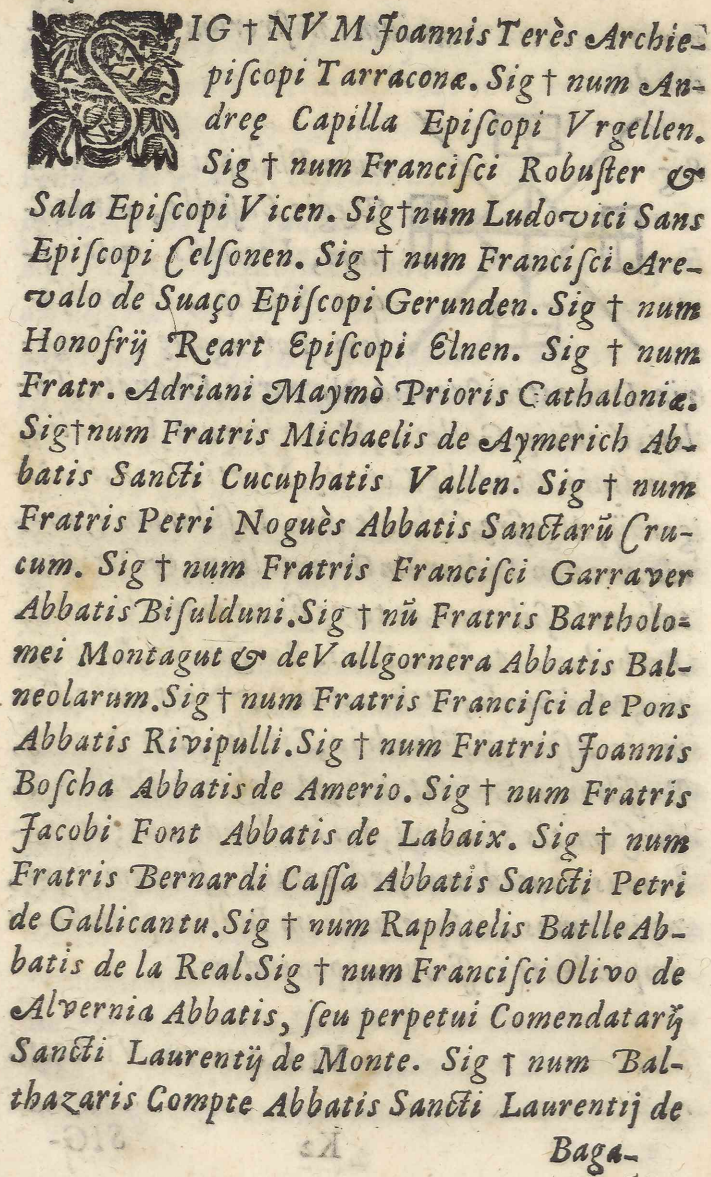 SIG † NVM Joannis Terès Archie-
piſcopi Tarraconæ. Sig † num An-
dreę Capilla Epiſcopi Vrgellen.
Sig † num Franciſci Robuſter &
Sala Epiſcopi Vicen. Sig†num Ludovici Sans
Epiſcopi Celſonen. Sig † num Franciſci Are-
valo de Suaço Epiſcopi Gerunden. Sig † num
Honofrij Reart Epiſcopi Elnen. Sig † num
Fratr. Adriani Maymò Prioris Cathaloniæ.
Sig†num Fratris Michaelis de Aymerich Ab-
batis Sancti Cucuphatis Vallen. Sig † num
Fratris Petri Noguès Abbatis Sanctarũ Cru-
cum. Sig † num Fratris Franciſci Garraver
Abbatis Biſulduni. Sig † nũ Fratris Bartholo-
mei Montagut & de Vallgornera Abbatis Bal-
neolarum. Sig † num Fratris Franciſci de Pons
Abbatis Rivipulli. Sig † num Fratris Joannis
Boſcha Abbatis de Amerio. Sig † num Fratris
Jacobi Font Abbatis de Labaix. Sig † num
Fratris Bernardi Caſſa Abbatis Sancti Petri
de Gallicantu. Sig † num Raphaelis Batlle Ab-
batis de la Real. Sig † num Franciſci Olivo de
Alvernia Abbatis, ſeu perpetui Comendatarij
Sancti Laurentij de Monte. Sig † num Bal-
thazaris Compte Abbatis Sancti Laurentij de
Baga-